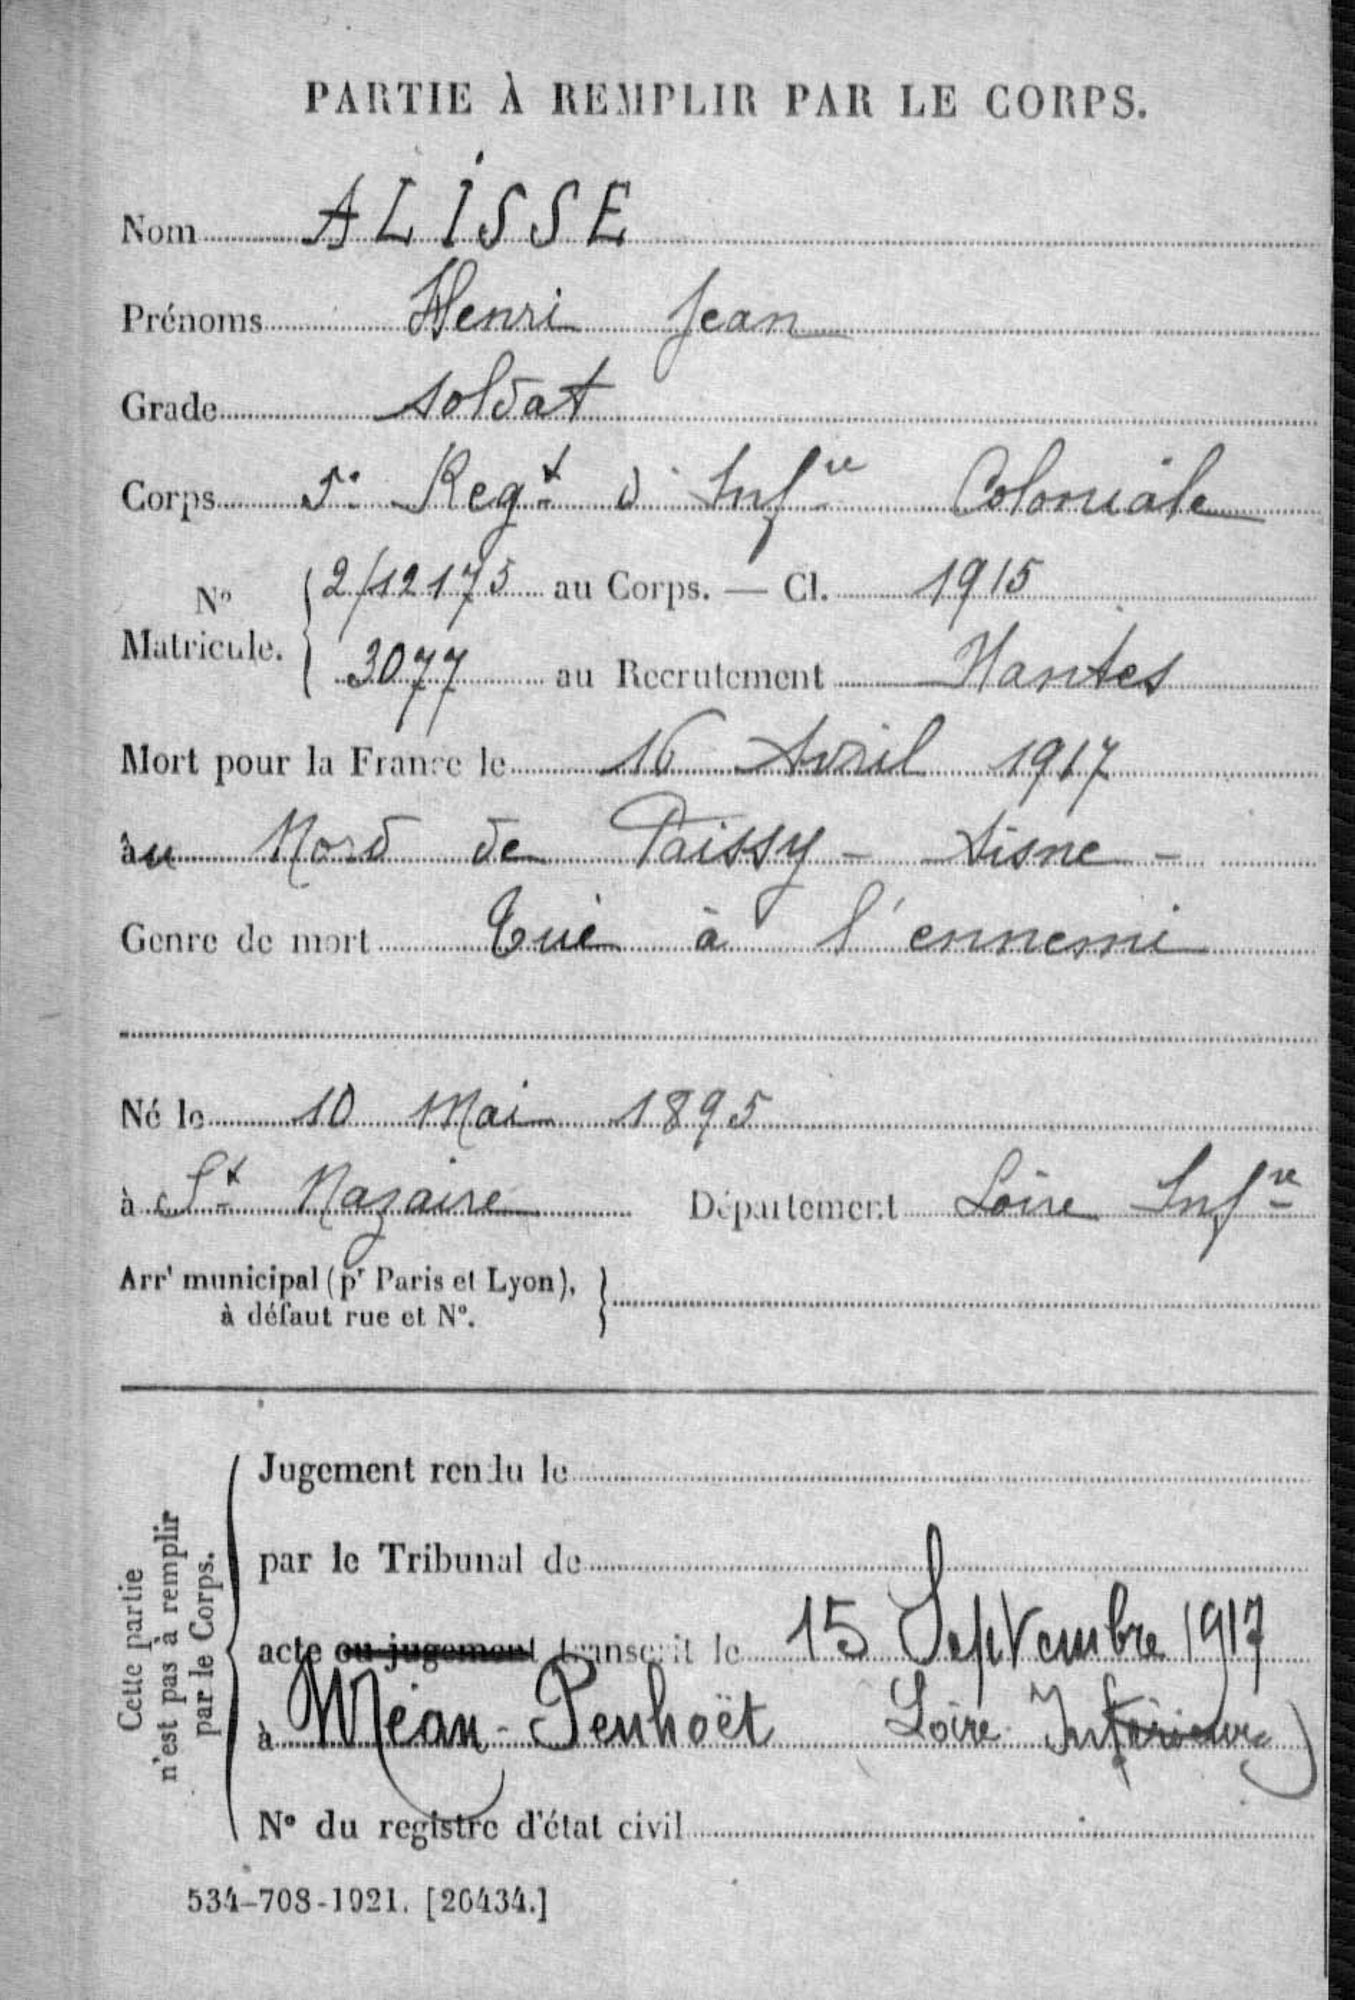 PARTIE À REMPLIR PAR LE CORPS.
Nom ALISSE
Prénoms Henri Jean
Grade soldat
Corps 5e Regt d'Infre Coloniale
No Matricule. { 2/12175 au Corps. — Cl. 1915
3077 au Recrutement Nantes
Mort pour la France le 16 Avril 1917
àu Nord de Paissy - Aisne -
Genre de mort Tué à l'ennemi
Né le 10 Mai 1895
à St Nazaire Département Loire Infre
Arrt municipal (pr Paris et Lyon), }
à défaut rue et N°.
Cette partie
n'est pas à remplir
par le Corps.
Jugement rendu le
par le Tribunal de
acte ou jugement transcrit le 15 Septembre 1917
à Méan-Penhoët Loire Inférieure)
N° du registre d'état civil
534-708-1921. [26434.]